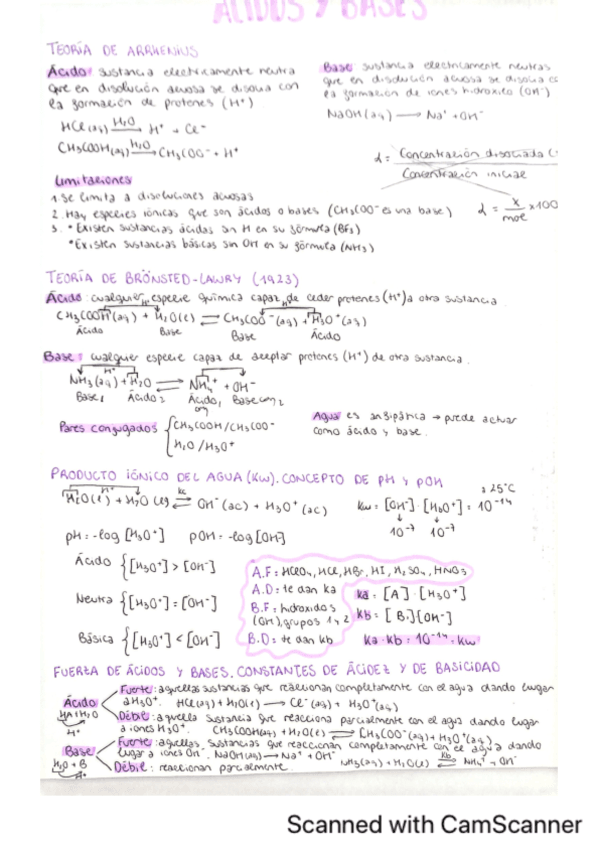 ÁCIDOS Y BASES
TEORÍA DE ARRHENIUS
Ácido: sustancia eléctricamente neutra
que en disolución acuosa se disocia con
la formación de protones (H⁺)
HCl(aq) —H₂O→ H⁺ + Cl⁻
CH₃COOH(aq) —H₂O→ CH₃COO⁻ + H⁺
Base: sustancia eléctricamente neutras
que en disolución acuosa se disocia
la formación de iones hidróxilo (OH⁻)
NaOH(aq) → Na⁺ + OH⁻
α = Concentración disociada
Concentración inicial
α = x/mole x100
Limitaciones
1. Se limita a disoluciones acuosas
2. Hay especies iónicas que son ácidos o bases (CH₃COO⁻ es una base)
3. • Existen sustancias ácidas sin H en su fórmula (BF₃)
• Existen sustancias básicas sin OH en su fórmula (NH₃)
TEORÍA DE BRÖNSTED-LAWRY (1923)
Ácido: cualquier especie química capaz de ceder protones (H⁺) a otra sustancia.
H⁺ H⁺
CH₃COOH(aq) + H₂O(l) ⇌ CH₃COO⁻(aq) + H₃O⁺(aq)
Ácido Base Base Ácido
Base: cualquier especie capaz de aceptar protones (H⁺) de otra sustancia.
H⁺
NH₃(aq) + H₂O ⇌ NH₄⁺ + OH⁻
Base₁ Ácido₂ Ácido₁ Base conj 2
conj
Pares conjugados { CH₃COOH/CH₃COO⁻
H₂O/H₃O⁺
Agua es anfipática → puede actuar
como ácido y base.
PRODUCTO IÓNICO DEL AGUA (Kw). CONCEPTO DE PH Y POH
H⁺
H₂O(l) + H₂O(l) ⇌ OH⁻(ac) + H₃O⁺(ac)
a 25°C
Kw = [OH⁻]·[H₃O⁺] = 10⁻¹⁴
10⁻⁷ 10⁻⁷
pH = -log [H₃O⁺] pOH = -log [OH⁻]
Ácido { [H₃O⁺] > [OH⁻]
Neutra { [H₃O⁺] = [OH⁻]
Básica { [H₃O⁺] < [OH⁻]
A.F: HClO₄, HCl, HBr, HI, H₂SO₄, HNO₃
A.D: te dan ka
B.F: hidróxidos
(OH), grupos 1 y 2
B.D: te dan kb
ka = [A]·[H₃O⁺]
kb = [B]·[OH⁻]
ka·kb = 10⁻¹⁴ = kw
FUERZA DE ÁCIDOS Y BASES. CONSTANTES DE ÁCIDEZ Y DE BASICIDAD
Ácido
HA + H₂O
H⁺
Fuerte: aquellas sustancias que reaccionan completamente con el agua dando lugar
a H₃O⁺. HCl(aq) + H₂O(l) → Cl⁻(aq) + H₃O⁺(aq)
Débil: aquella sustancia que reacciona parcialmente con el agua dando lugar
a iones H₃O⁺. CH₃COOH(aq) + H₂O(l) ⇌ CH₃COO⁻(aq) + H₃O⁺(aq)
Base
H₂O + B
H⁺
Fuerte: aquellas sustancias que reaccionan completamente con el agua dando
lugar a iones OH⁻. NaOH(aq) → Na⁺ + OH⁻
Débil: reaccionan parcialmente. NH₃(aq) + H₂O(l) ⇌ NH₄⁺ + OH⁻
kb
Scanned with CamScanner